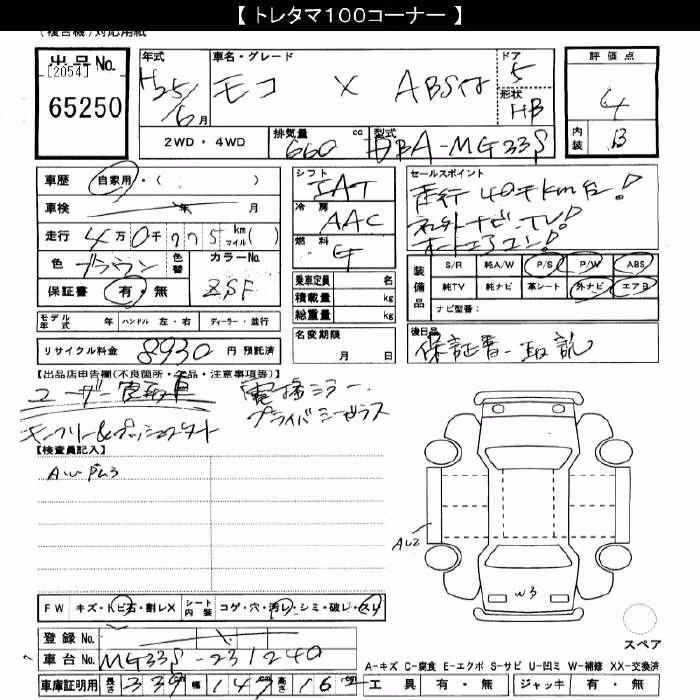 【 トレタマ100コーナー 】
(複合機)対応用紙
出品No.
[2054]
65250
年式 H25/6月
車名・グレード モコ X ABS付
ドア 5
形状 HB
2WD・4WD
排気量 660 cc
型式 DBA-MG33S
評価点 4
内装 B
車歴 自家用・( )
車検 年 月
走行 4万0千775 km マイル( )
色 ブラウン 色替 カラーNo. ZSF
保証書 有・無
モデル年式 年 ハンドル 左・右 ディーラー・並行
リサイクル料金 8930 円 預託済
シフト IAT
冷房 AAC
燃料 G
乗車定員 名
積載量 kg
総重量 kg
名変期限 月 日
セールスポイント
走行40千km台!
社外ナビ・TV!
オートエアコン!
装備品 S/R 純A/W P/S P/W ABS
純TV 純ナビ 革シート 外ナビ エアB
ナビ型番:
後日品
保証書・取説
【出品店申告欄(不良箇所・欠品・注意事項等)】
ユーザー買取車 電格ミラー・
キーフリー&プッシュスタート プライバシーガラス
【検査員記入】
AW
AU2
W3
FW キズ・トビ石・割レX シート内装 コゲ・穴・汚レ・シミ・破レ・スレ
登録No.
車台No. MG33S-231240
車庫証明用 長さ 339 幅 147 高さ 16
スペア
A-キズ C-腐食 E-エクボ S-サビ U-凹ミ W-補修 XX-交換済
工具 有・無 ジャッキ 有・無